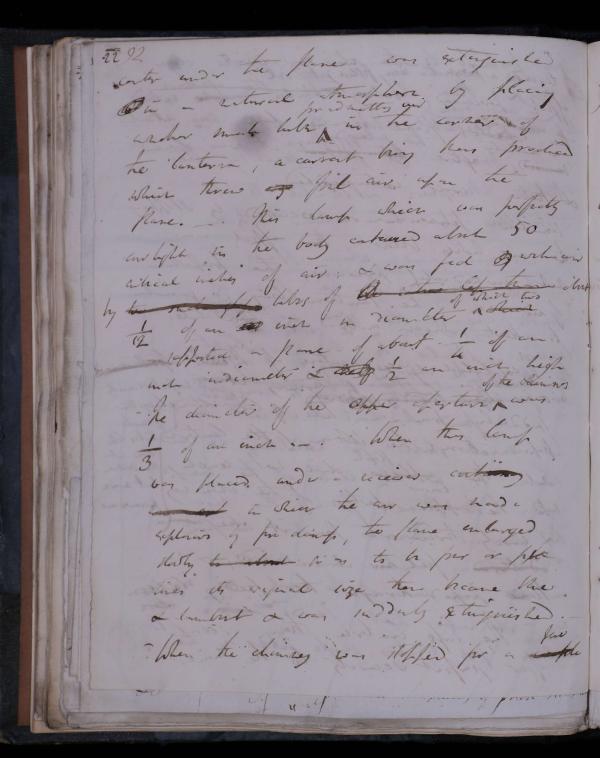 22 92
under the flame was extinguished
in a natural atmosphere by placing
another small tube in the centre of
the lantern, a current being thus produced
which threw foul air upon the
flame. — This lamp which was perfectly
air tight in the body contained about 50
cubical inches of air, & was fed with air
by tubes of about
1/12 of an inch in diameter of which two
supported a flame of about 1/6 of an
inch in diameter & 1/2 an inch high
The diameter of the upper aperture of the chimney was
1/3 of an inch —. When this lamp
was placed under a receiver
in which the air was made
explosive by fire damp, the flame enlarged
slowly so as to be four or five
times its original size then became blue
& lambent & was suddenly extinguished.
When the chimney was stopped for a few